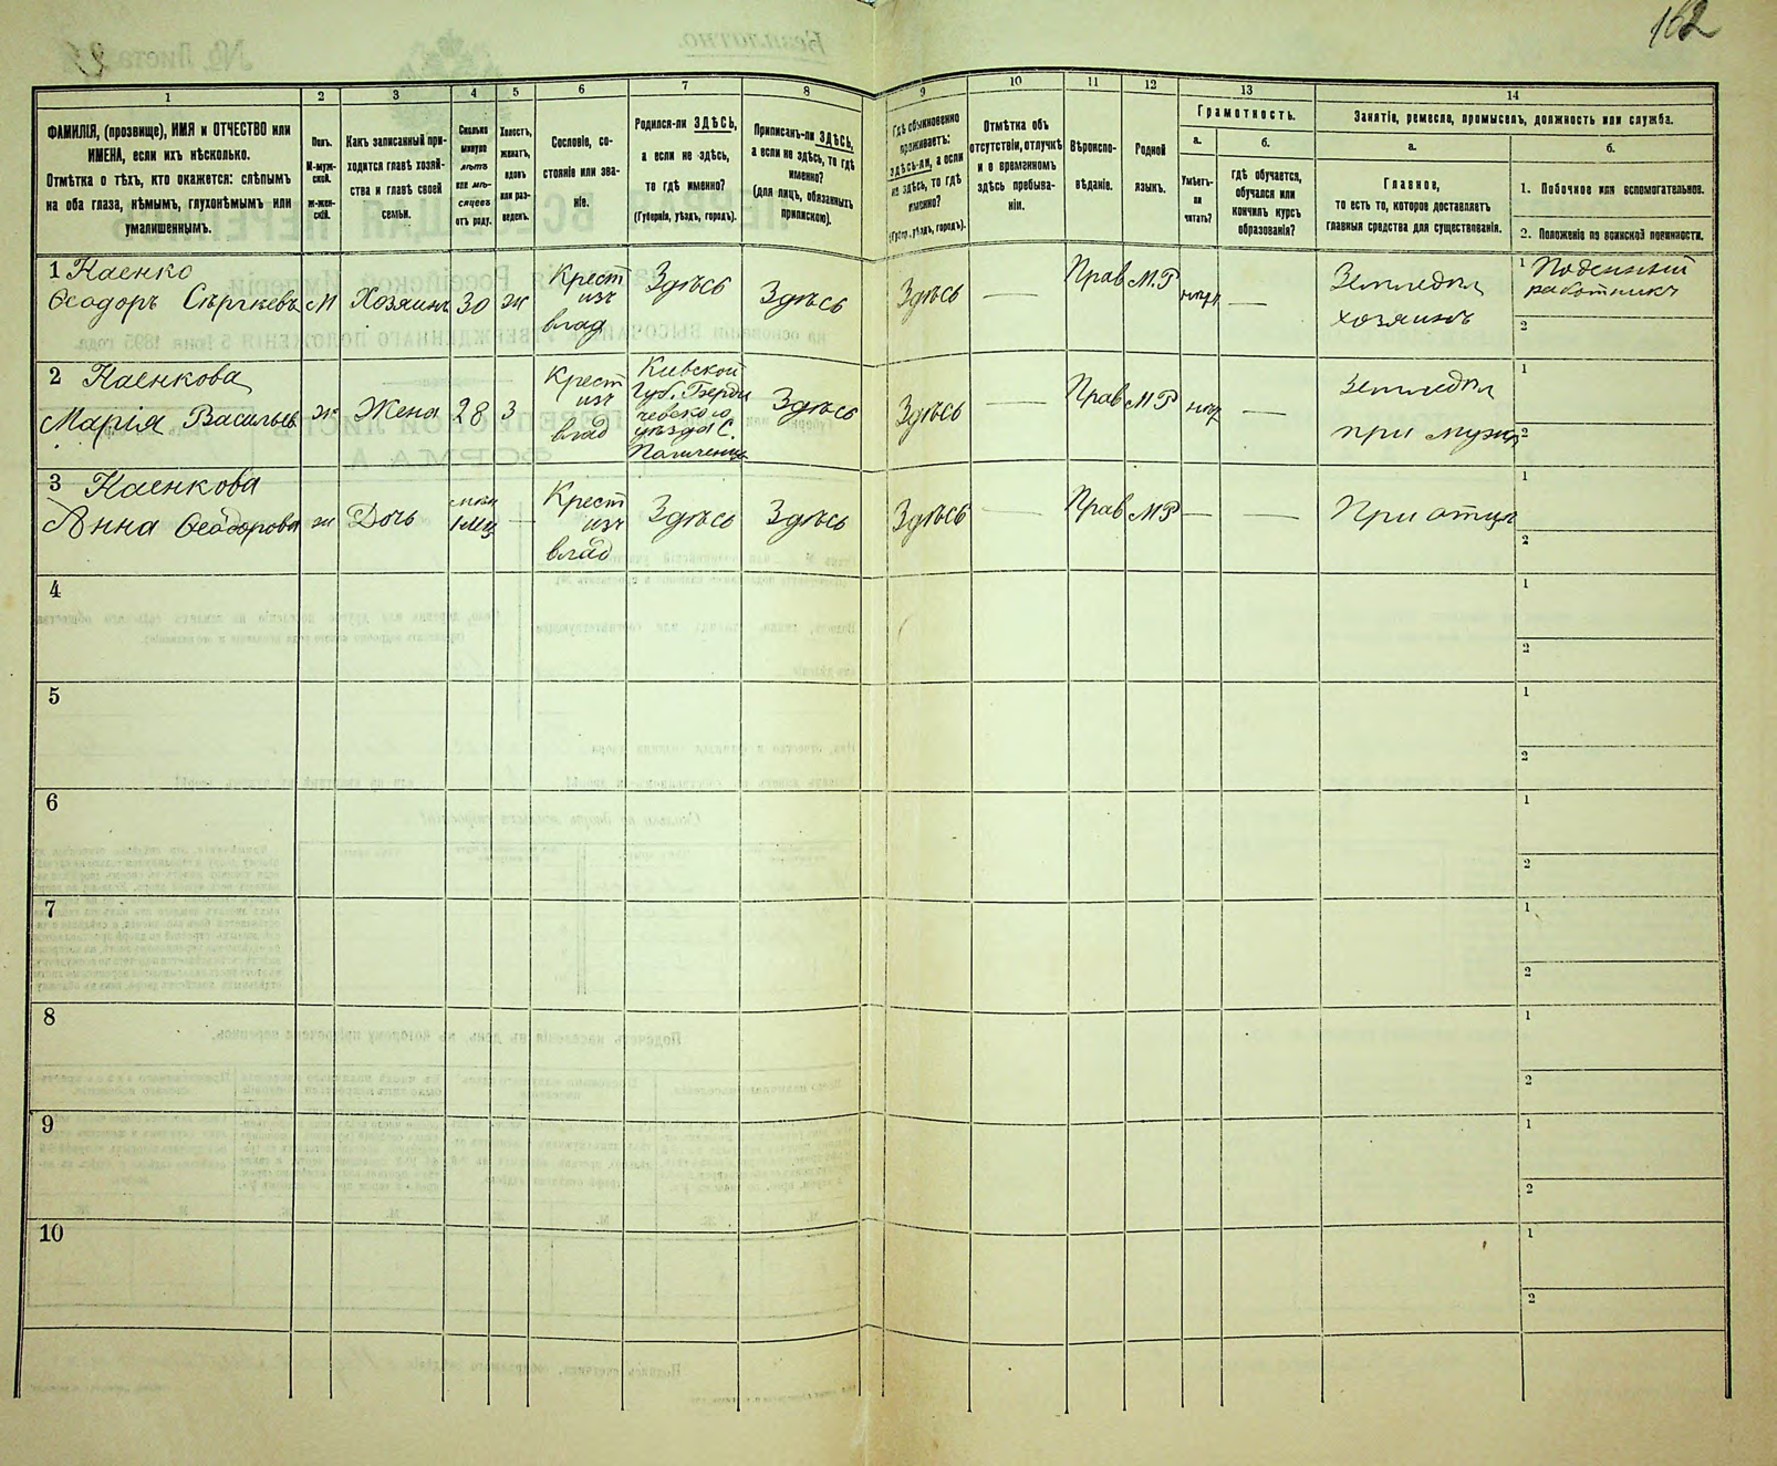 162
1
2
3
4
5
6
7
8
9
10
11
12
13
14
ФАМИЛІЯ, (прозвище), ИМЯ и ОТЧЕСТВО или
ИМЕНА, если ихъ нѣсколько.
Отмѣтка о тѣхъ, кто окажется: слѣпымъ
на оба глаза, нѣмымъ, глухонѣмымъ или
умалишеннымъ.
Полъ.
М-муж-
ской.
Ж-жен-
скій.
Какъ записанный при-
ходится главѣ хозяй-
ства и главѣ своей
семьи.
Сколько
минуло
лѣтъ
или мѣ-
сяцевъ
отъ роду.
Холостъ,
женатъ,
вдовъ
или раз-
веденъ.
Сословіе, со-
стояніе или зва-
ніе.
Родился-ли ЗДѢСЬ,
а если не здѣсь,
то гдѣ именно?
(Губернія, уѣздъ, городъ).
Приписанъ-ли ЗДѢСЬ,
а если не здѣсь, то гдѣ
именно?
(для лицъ, обязанныхъ
припискою).
Гдѣ обыкновенно
проживаетъ:
здѣсь-ли, а если
не здѣсь, то гдѣ
именно?
(Губер., уѣздъ, городъ).
Отмѣтка объ
отсутствіи, отлучкѣ
и о временномъ
здѣсь пребыва-
ніи.
Вѣроиспо-
вѣданіе.
Родной
языкъ.
Грамотность.
а.
Умѣетъ-
ли
читать?
б.
гдѣ обучается,
обучался или
кончилъ курсъ
образованія?
Занятіе, ремесло, промыселъ, должность или служба.
а.
Главное,
то есть то, которое доставляетъ
главныя средства для существованія.
б.
1. Побочное или вспомогательное.
2. Положеніе по воинской повинности.
1 Каенко
Ѳеодоръ Сергѣевъ М Хозяинъ 30 ж Крест изъ влад Здѣсь Здѣсь Здѣсь — Прав М.Р — Земледѣл хозяинъ
1 Поденный
работникъ
2
2 Каенкова
Марія Васильев ж Жена 28 З Крест изъ влад
Кіевской
Губ. Берди
чевскаго
уѣзда С.
Здѣсь Здѣсь — Прав М Р — Земледѣл
при мужѣ
1
2
3 Каенкова
Анна Ѳеодорова ж Дочь 1 мц — Крест изъ влад Здѣсь Здѣсь Здѣсь — Прав М Р — — При отцѣ
1
2
4
1
2
5
1
2
6
1
2
7
1
2
8
1
2
9
1
2
10
1
2